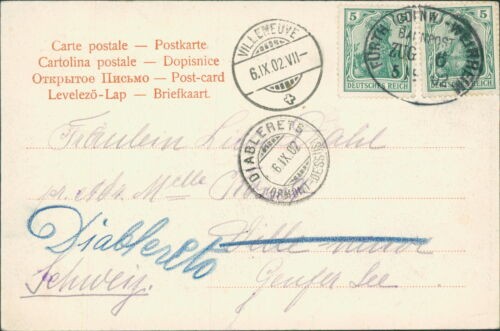 Carte postale — Postkarte
Cartolina postale — Dopisnice
Открытое Письмо — Post-card
Levelező-Lap — Briefkaart.
VILLENEUVE
6.IX.02.VII—
5
5
DEUTSCHES REICH
DEUTSCHES REICH
BAHNPOST
ZUG
DIABLERETS
6.IX.02
(ORMONT-DESSUS)
Fräulein
pr. Adr. Melle
Diablerets
Villeneuve
Schweiz.
Genfer See